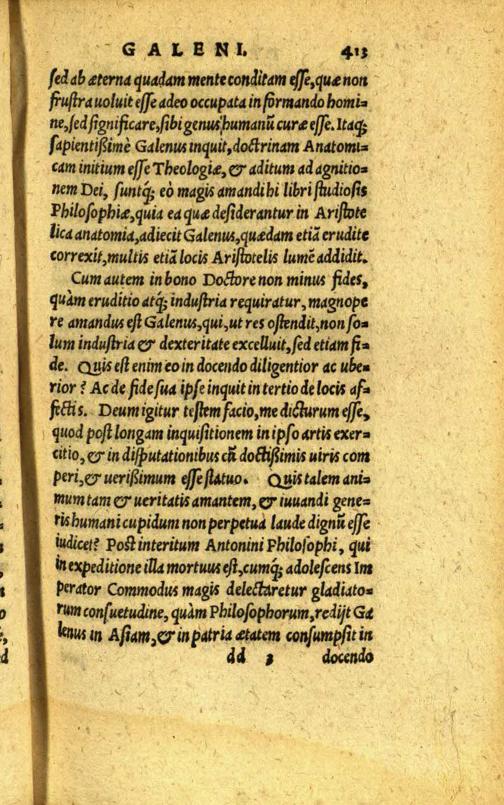 GALENI. 413
sed ab æterna quadam mente conditam esse, quæ non
frustra uoluit esse adeo occupata in formando homi=
ne, sed significare, sibi genus humanũ curæ esse. Itaq;
sapientißimè Galenus inquit, doctrinam Anatomi=
cam initium esse Theologiæ, & aditum ad agnitio=
nem Dei, suntq; eò magis amandi hi libri studiosis
Philosophiæ, quia ea quæ desiderantur in Aristote
lica anatomia, adiecit Galenus, quædam etiã erudite
correxit, multis etiã locis Aristotelis lumẽ addidit.
Cum autem in bono Doctore non minus fides,
quàm eruditio atq; industria requiratur, magnope
re amandus est Galenus, qui, ut res ostendit, non so=
lum industria & dexteritate excelluit, sed etiam fi=
de. Quis est enim eo in docendo diligentior ac ube=
rior? Ac de fide sua ipse inquit in tertio de locis af=
fectis. Deum igitur testem facio, me dicturum esse,
quod post longam inquisitionem in ipso artis exer=
citio, & in disputationibus cũ doctißimis uiris com
peri, & uerißimum esse statuo. Quis talem ani=
mum tam & ueritatis amantem, & iuuandi gene=
ris humani cupidum non perpetua laude dignũ esse
iudicet? Post interitum Antonini Philosophi, qui
in expeditione illa mortuus est, cumq; adolescens Im
perator Commodus magis delectaretur gladiato=
rum consuetudine, quàm Philosophorum, redijt Ga
lenus in Asiam, & in patria ætatem consumpsit in
dd 3 docendo